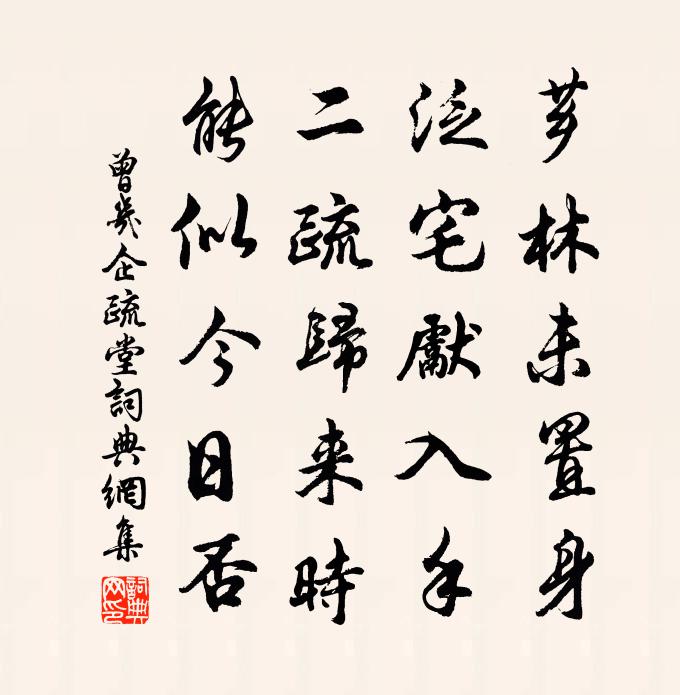 芗林未置身
泛宅献入手
二疏歸来時
能似今日否
曾幾企疏堂詞典網集
詞典網印